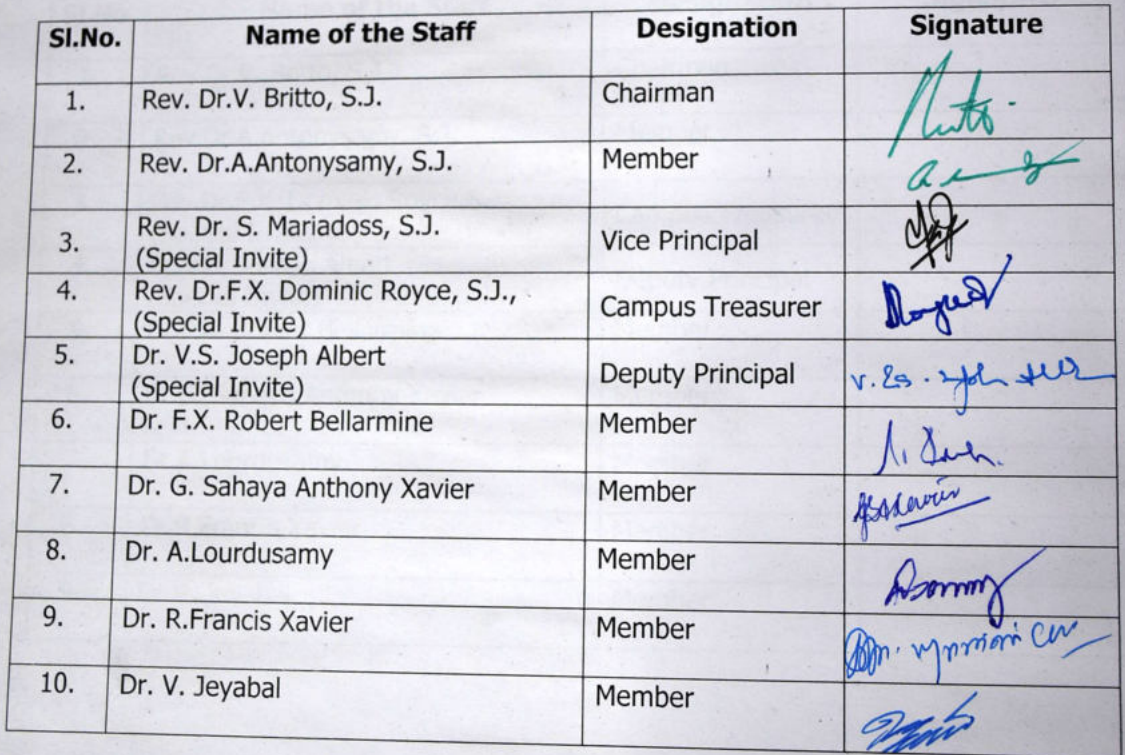 Sl.No. Name of the Staff Designation Signature
1. Rev. Dr.V. Britto, S.J. Chairman
2. Rev. Dr.A.Antonysamy, S.J. Member
3. Rev. Dr. S. Mariadoss, S.J. Vice Principal
(Special Invite)
4. Rev. Dr.F.X. Dominic Royce, S.J., Campus Treasurer
(Special Invite)
5. Dr. V.S. Joseph Albert Deputy Principal
(Special Invite)
6. Dr. F.X. Robert Bellarmine Member
7. Dr. G. Sahaya Anthony Xavier Member
8. Dr. A.Lourdusamy Member
9. Dr. R.Francis Xavier Member
10. Dr. V. Jeyabal Member